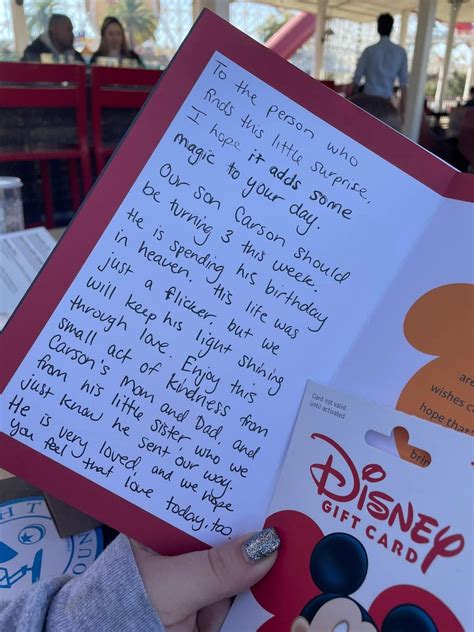 To the person who
finds this little surprise,
I hope it adds some
magic to your day.
Our son Carson should
be turning 3 this week.
He is spending his birthday
in heaven. His life was
just a flicker, but we
will keep his light shining
through love. Enjoy this
small act of kindness from
Carson's mom and Dad, and
from his little sister who we
just know he sent our way.
He is very loved, and we hope
you feel that love today, too.
are
wishes c
hope tha
Card not valid
until activated
Disney
GIFT CARD